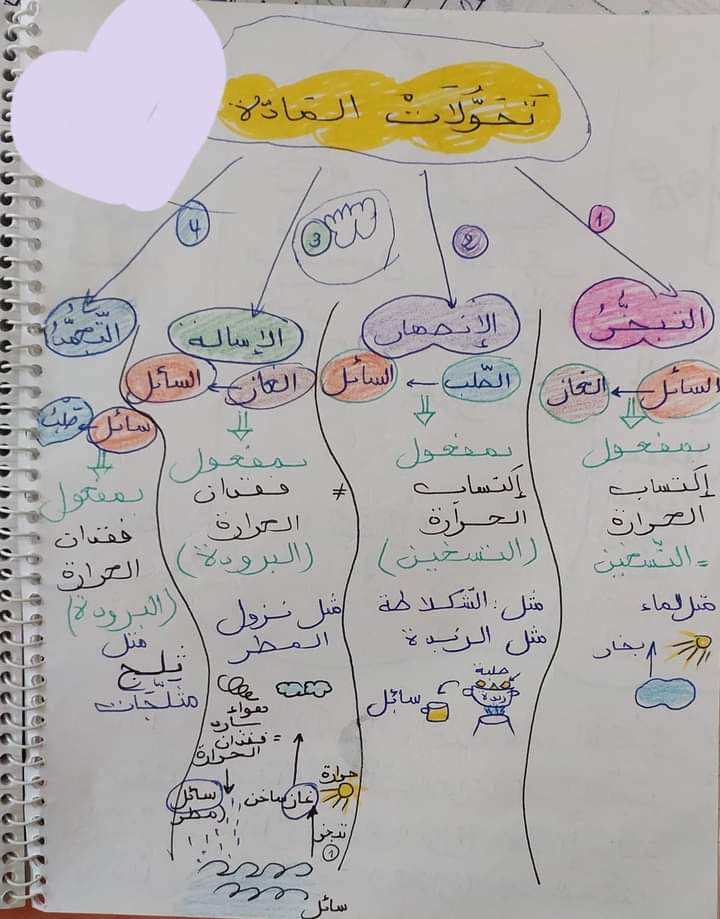 تَحَوُّلَاتْ المَادّة
1
2
3
4
التبخُّرُ
السائل ← الغاز
بمفعول
إكتساب
الحرارة
= التّسخين
مثل الماء
بخار
الإنصهار
الصّلب ← السائل
بمفعول
إكتساب
الحرارة
(التسخين)
مثل: الشكلاطة
مثل الزبدة
صلبة
زبدة
سائل
الإسالة
الغاز ← السائل
بمفعول
≠ فقدان
الحرارة
(البرودة)
مثل نزول
المطر
هواء
بارد
= فقدان
الحرارة
حرارة
غاز ساخن
سائل
(مطر)
تبخر
1
سائل
التّجمّدُ
سائل ← صلبْ
بمفعول
فقدان
الحرارة
(البرودة)
مثل
ثلج
مثلّجات